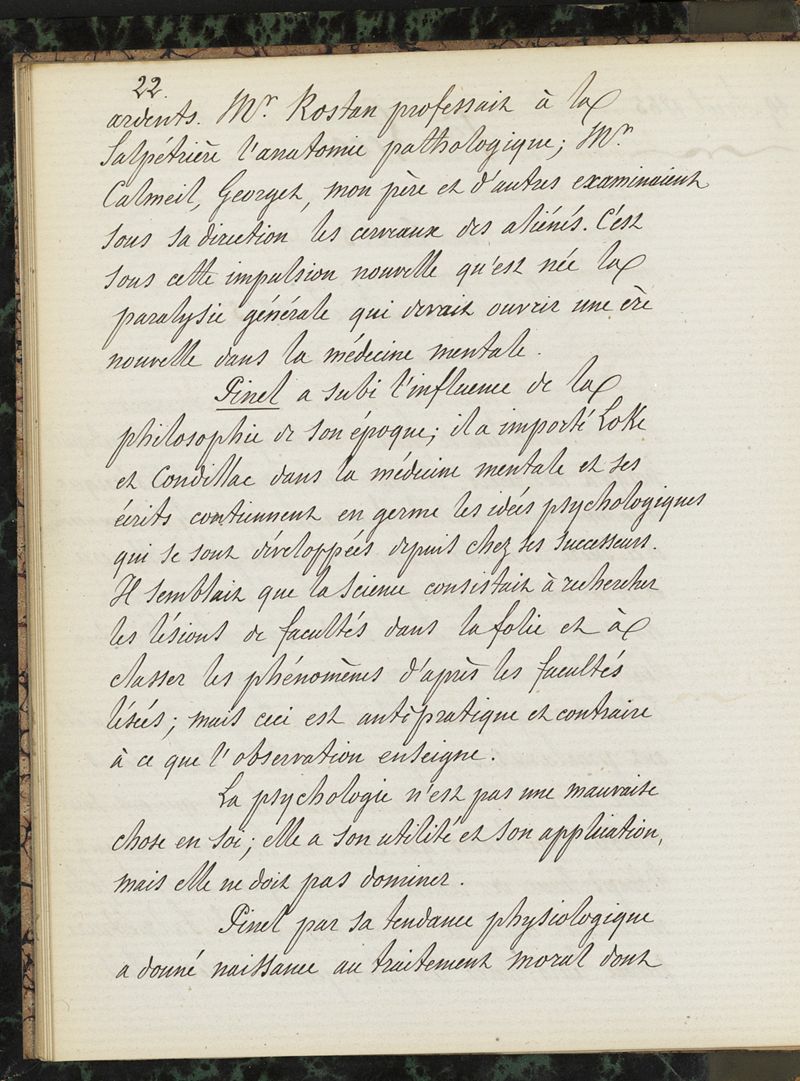 22.
ardents. Mr Rostan professait à la
Salpétrière l'anatomie pathologique; Mr
Calmeil, Georget, mon père et d'autres examinaient
sous sa direction les cerveaux des aliénés. C'est
sous cette impulsion nouvelle qu'est née la
paralysie générale qui devait ouvrir une ère
nouvelle dans la médecine mentale.
Pinel a subi l'influence de la
philosophie de son époque; il a importé Loke
et Condillac dans la médecine mentale et ses
écrits contiennent en germe les idées psychologiques
qui se sont développées depuis chez ses successeurs.
Il semblait que la science consistait à rechercher
les lésions de facultés dans la folie et à
classer les phénomènes d'après les facultés
lésées; mais ceci est antipratique et contraire
à ce que l'observation enseigne.
La psychologie n'est pas une mauvaise
chose en soi; elle a son utilité et son application,
mais elle ne doit pas dominer.
Pinel par sa tendance physiologique
a donné naissance au traitement moral dont